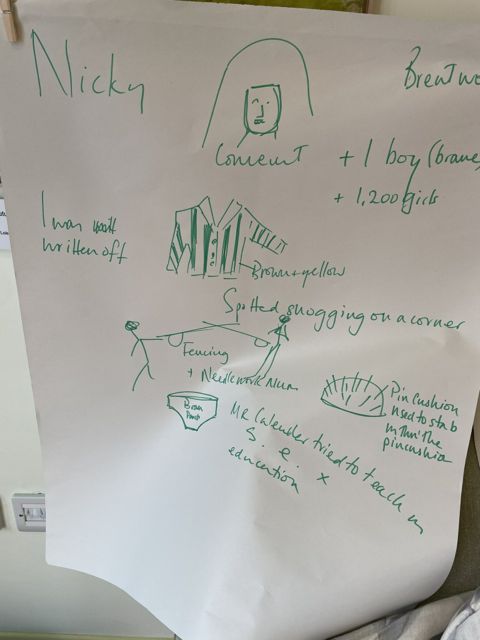 Nicky
Brentwo
Convent
+ 1 boy (brave
+ 1,200 girls
I was
written off
Brown + yellow
Spotted snogging on a corner
Fencing
+ Needlework Nun
Pin cushion
used to stab
the
pincushion
Brown
Mr Calender tried to teach
s. e. x
education